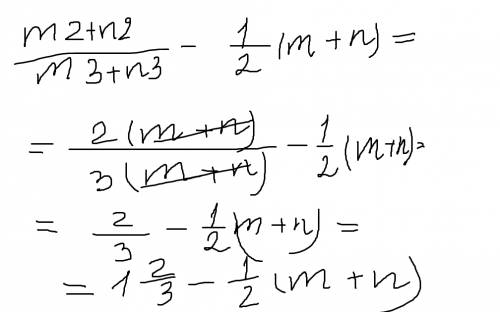 m2+n2/m3+n3 - 1/2 (m+n) =
= 2(m+n)/3(m+n) - 1/2 (m+n) =
= 2/3 - 1/2 (m+n) =
= 1 2/3 - 1/2 (m+n)